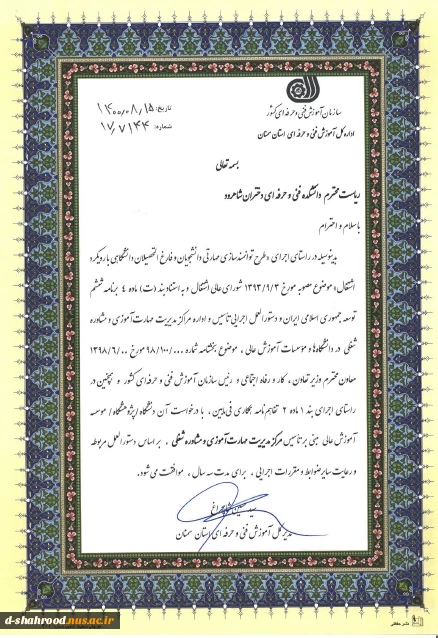 سازمان آموزش فنی و حرفه ای کشور
اداره کل آموزش فنی و حرفه ای استان سمنان
تاریخ: ۱۴۰۰/۰۸/۱۵
شماره: ۱۷/۷۱۴۴
بسمه تعالی
ریاست محترم دانشکده فنی و حرفه ای دختران شاهرود
با سلام و احترام
بدینوسیله در راستای اجرای «طرح توانمندسازی مهارتی دانشجویان و فارغ التحصیلان دانشگاهی با رویکرد
اشتغال» موضوع مصوبه مورخ ۱۳۹۳/۹/۳ شورای عالی اشتغال و به استناد بند (ت) ماده ۴ برنامه ششم
توسعه جمهوری اسلامی ایران و دستورالعمل اجرایی تاسیس و اداره مراکز مدیریت مهارت آموزی و مشاوره
شغلی در دانشگاهها و مؤسسات آموزش عالی ، موضوع بخشنامه شماره ۹۸/۱۰۰/۰۰۰ مورخ ۱۳۹۸/۶/۰۰
معاون محترم وزیر تعاون ، کار و رفاه اجتماعی و رئیس سازمان آموزش فنی و حرفه ای کشور و همچنین در
راستای اجرای بند ۱ ماده ۲ تفاهم نامه همکاری فی مابین ، با درخواست آن دانشگاه/پژوهشگاه/ موسسه
آموزش عالی مبنی بر تاسیس مرکز مدیریت مهارت آموزی و مشاوره شغلی ، بر اساس دستورالعمل مربوطه
و رعایت سایر ضوابط و مقررات اجرایی ، برای مدت سه سال ، موافقت می شود.
مدیرکل آموزش فنی و حرفه ای استان سمنان
d-shahrood.nus.ac.ir